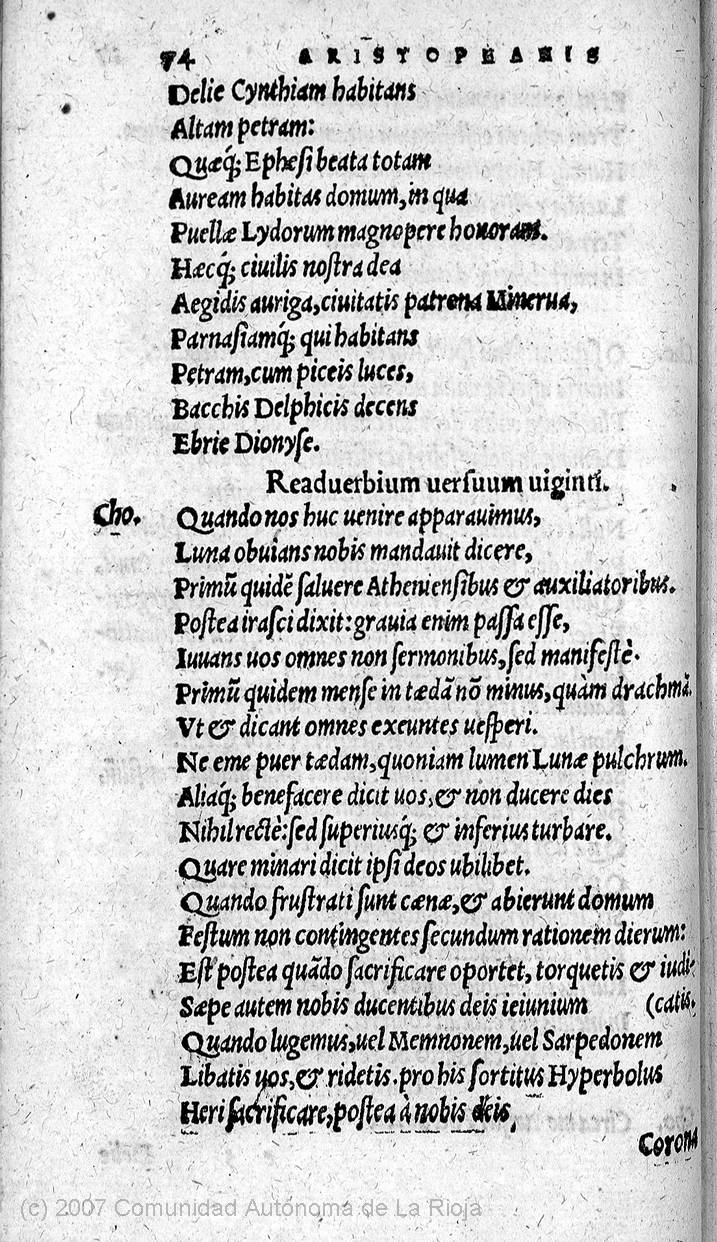 74 ARISTOPHANIS
Delie Cynthiam habitans
Altam petram:
Quæq́; Ephesi beata totam
Auream habitas domum, in qua
Puellæ Lydorum magnopere honorant.
Hæcq́; ciuilis nostra dea
Aegidis auriga, ciuitatis patrona Minerua,
Parnasiamq́; qui habitans
Petram, cum piceis luces,
Bacchis Delphicis decens
Ebrie Dionyse.
Readuerbium uersuum uiginti.
Cho. Quando nos huc uenire apparauimus,
Luna obuians nobis mandauit dicere,
Primũ quidẽ saluere Atheniensibus & auxiliatoribus.
Postea irasci dixit: grauia enim passa esse,
Iuuans uos omnes non sermonibus, sed manifestè.
Primũ quidem mense in tædã nõ minus, quàm drachmã.
Vt & dicant omnes exeuntes uesperi.
Ne eme puer tædam, quoniam lumen Lunæ pulchrum.
Aliaq́; benefacere dicit uos, & non ducere dies
Nihil rectè: sed superiusq́; & inferius turbare.
Quare minari dicit ipsi deos ubilibet.
Quando frustrati sunt cænæ, & abierunt domum
Festum non contingentes secundum rationem dierum:
Est postea quãdo sacrificare oportet, torquetis & iudi-
Sæpe autem nobis ducentibus deis ieiunium (catis.
Quando lugemus, uel Memnonem, uel Sarpedonem
Libatis uos, & ridetis. pro his sortitus Hyperbolus
Heri sacrificare, postea à nobis deis,
Corona
(c) 2007 Comunidad Autónoma de La Rioja